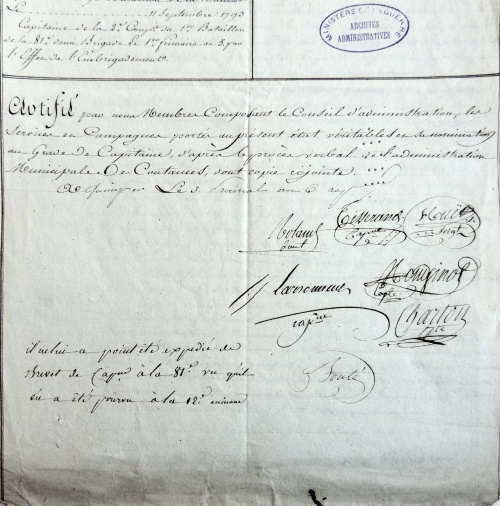 11 Septembre 1793
Capitaine de la 2e Compie du 1er Bataillon
de la 81e demi Brigade le 1er frimaire an 5 par
l'Effet de l'Embrigademens
MINISTÈRE DE LA GUERRE
ARCHIVES
ADMINISTRATIVES
Certifié par nous Membres Composant le Conseil d'administration, les
Services en Campagnes portés au présent état véritables en sa nomination
au Grade de Capitaine, d'après le procès verbal de l'administration
Municipale De Coutances, dont copie cejointe
A Quimper Le 3 an 6 rep
Tisserand
capne
Sergt
Mouginot
Capte
capne
Charton
il ne lui a point été expédié de
Brevet de Capne à la 81e vu qu'il
en a été pourvu à la 12e ancienne